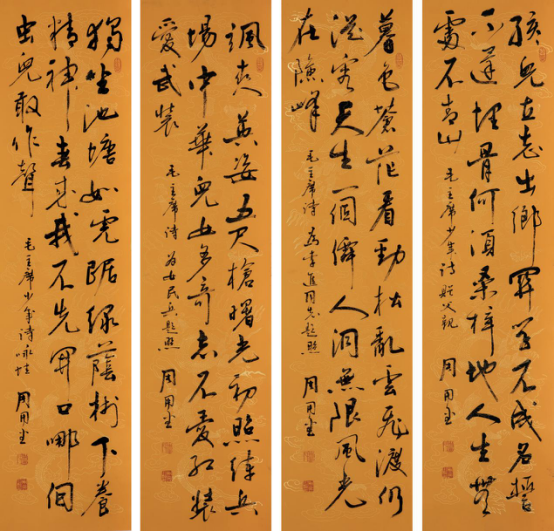 孩兒立志出鄉関学不成名誓
不還埋骨何須桑梓地人生無
處不青山
毛主席少年诗 贈父親 周用
暮色蒼茫看勁松亂雲飛渡仍
從容天生一個僊人洞無限風光
在險峰
毛主席詩 為李進同志題照 周用
颯爽英姿五尺槍曙光初照練兵
場中華兒女多奇志不愛紅裝
愛武裝
毛主席詩 為女民兵題照 周用
獨坐池塘如虎踞綠蔭樹下養
精神春來我不先開口哪個
虫兒敢作聲
毛主席少年詩咏蛙 周用